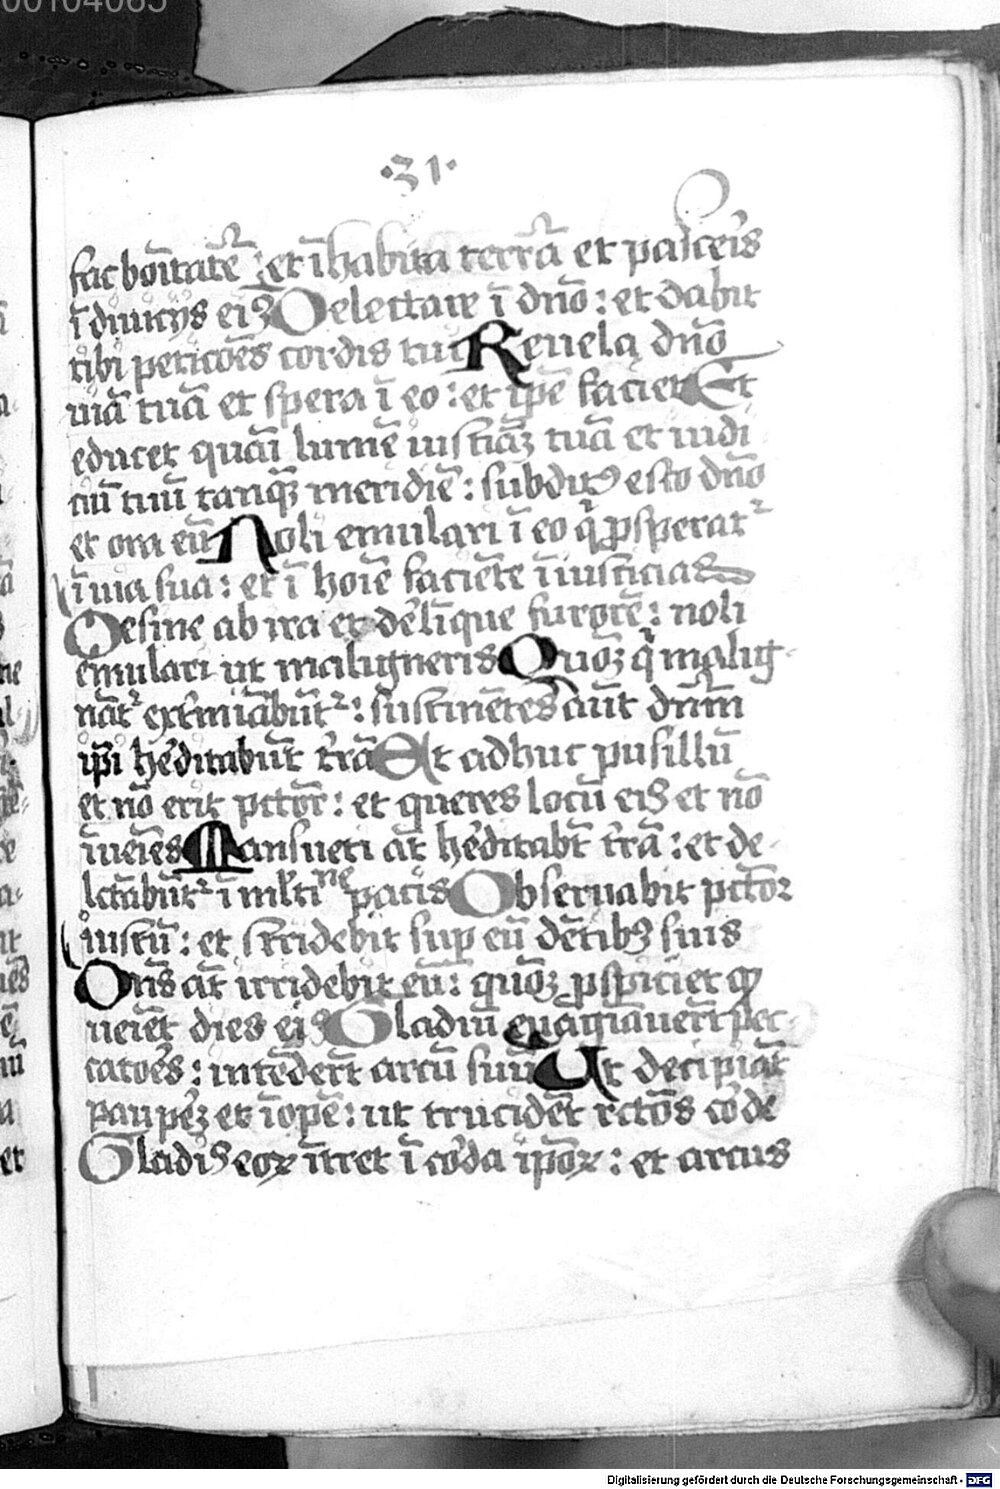 00104065
·31·
fac bōītatē : et īhabita terrā et pasceris
ī diuicijs eiꝰ Delectare ī dño : et dabit
tibi peticōēs cordis tui Reuela dño
uiā tuā et spera ī eo : et ip̄e faciet Et
educet quāi lumē iusticiāꝫ tuā et iudi
ciū tuū tanqꝫ meridiē : subditꝰ esto dño
et ora eū Noli emulari ī eo qͥ ꝓsperatᷣ
ī uia sua : et ī hoīē faciētē īiusticias
Desine ab ira et derelīque furorē : noli
emulari ut maligneris Quoꝫ qͥ malig-
nātᷣ extͥmīabūtᷣ : sustinētes aūt dñm
ip̄i hēditabūt tr̄ā Et adhuc pusillū
et nō erit pctōr : et queres locū eiꝰ et nō
īueīes Mansueti āt hēditabt̄ tr̄ā : et de-
lctābūtᷣ ī ml̄titᷠnē pacis Obseruabit pctōr
iustū : et stridebit sup eū dētibꝰ suis
Dñs āt irridebit eū : quōꝫ ꝓspiciet qꝫ
ueiet dies eiꝰ Gladiū euagīauer̄t pec-
catōēs : intēder̄t arcū suū Ut decipiāt
paupēꝫ et īopē : ut trucidēt rctōs cōde
Gladiꝰ eoꝝ ītret ī cōda ip̄oꝝ : et arcus
Digitalisierung gefördert durch die Deutsche Forschungsgemeinschaft - DFG